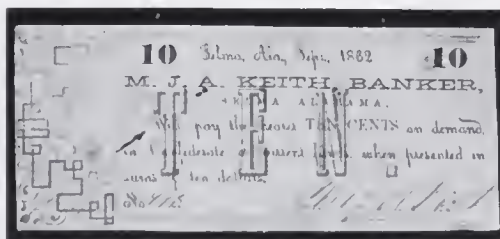 10 Selma, Ala, Sept. 1862 10
M. J. A. KEITH, BANKER,
SELMA ALABAMA.
Will pay the bearer TEN CENTS on demand,
in Confederate or current when presented in
sums of ten dollars.
No